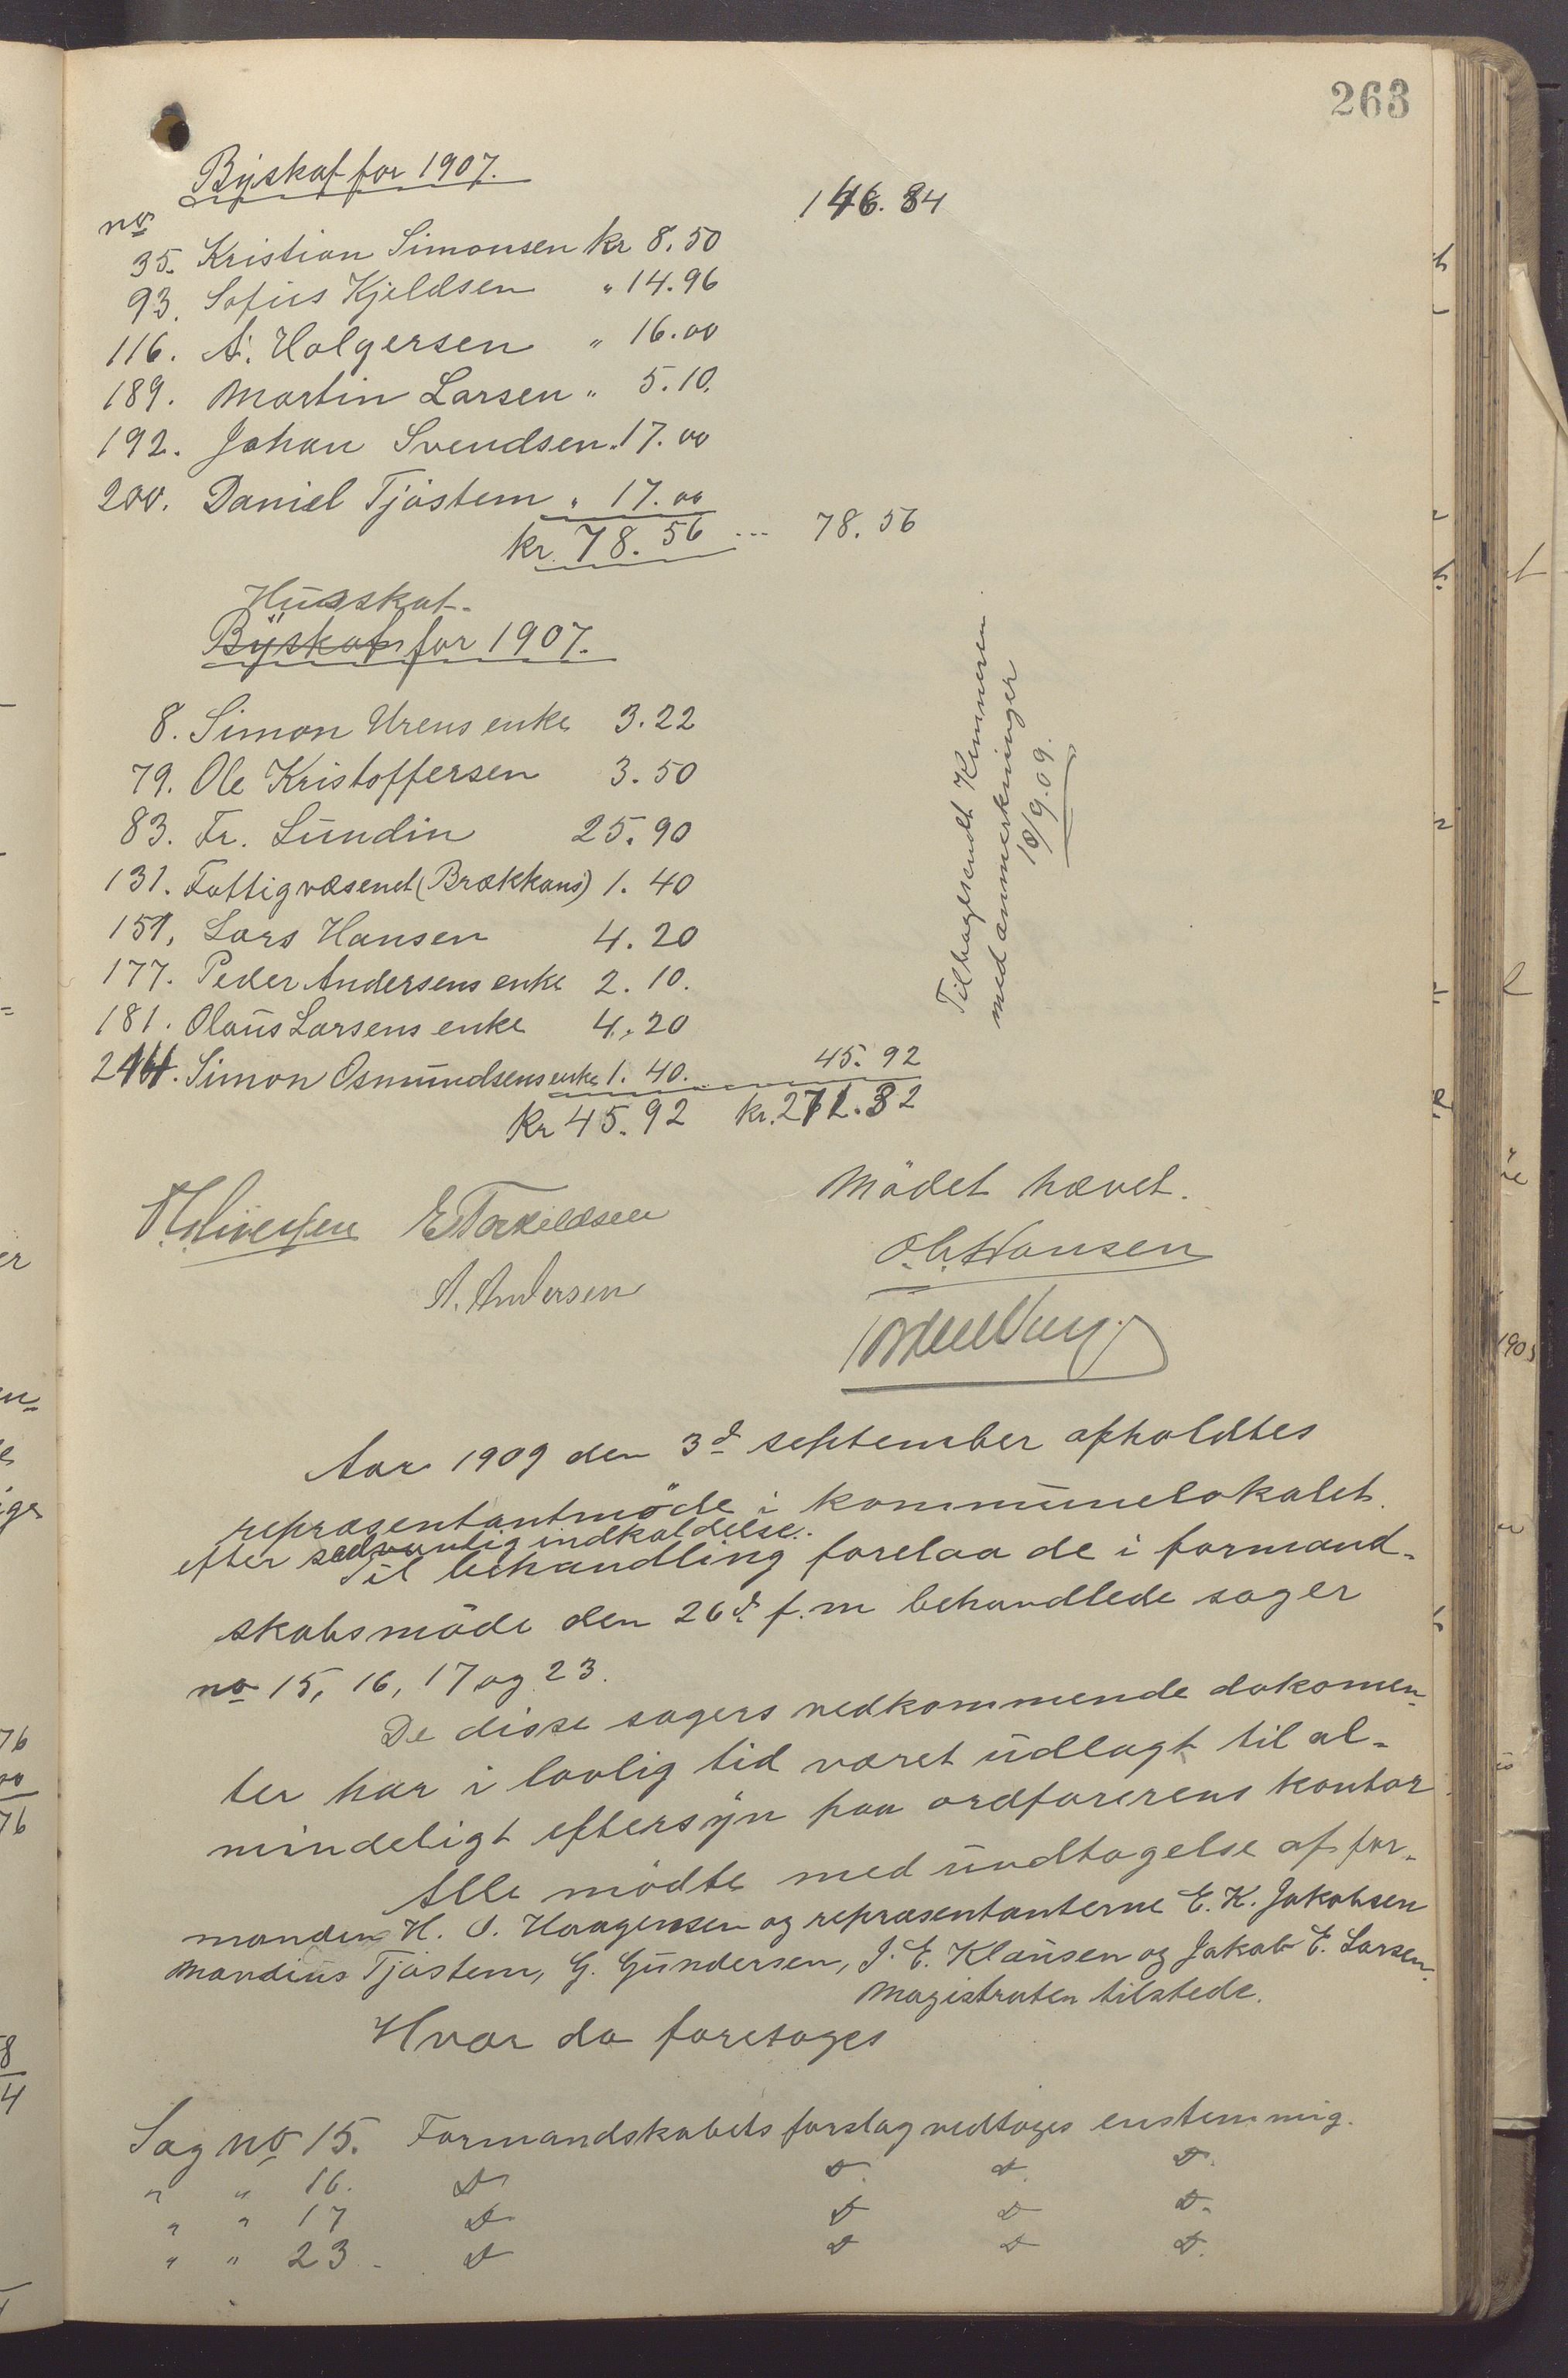 263
Byskat for 1907.
146.84
no
35. Kristian Simonsen kr 8.50
93. Sofus Kjeldsen " 14.96
116. A. Holgersen " 16.00
189. Martin Larsen " 5.10.
192. Johan Svendsen " 17.00
200. Daniel Tjøstem " 17.00
kr. 78.56 ... 78.56
Husskat.
Byskat for 1907.
8. Simon Urens enke 3.22
79. Ole Kristoffersen 3.50
83. Fr. Lundin 25.90
131. Fattigvæsenet (Brækkans) 1.40
151. Lars Hansen 4.20
177. Peder Andersens enke 2.10.
181. Olaus Larsens enke 4.20
244. Simon Osmundsens enke 1.40. 45.92
kr 45.92 kr. 271.32
Tilbagesendt Kemneren
med anmerkninger
18/9.09.
Mödet hævet.
E Torkildsen
O. C. Hansen
A. Andersen
Aar 1909 den 3d september afholdtes
repræsentantmöde i kommunelokalet.
efter sædvanlig indkaldelse.
Til behandling forelaa de i formand-
skabsmöde den 26d f. m behandlede sager
no 15, 16, 17 og 23.
De disse sagers vedkommende dokomen-
ter har i lovlig tid været udlagt til al-
mindeligt eftersyn paa ordförerens kontor.
Alle mödte med undtagelse af for-
manden H. O. Haagensen og repræsentanterne E. K. Jakobsen
Mandius Tjøstem, G. Gundersen, J. E. Klausen og Jakob E. Larsen.
Magistraten tilstede.
Hvor da foretoges
Sag no 15. Formandskabets forslag vedtoges enstemmig.
" " 16. D D. D. D.
" " 17 D D D D.
" " 23. D D D D.